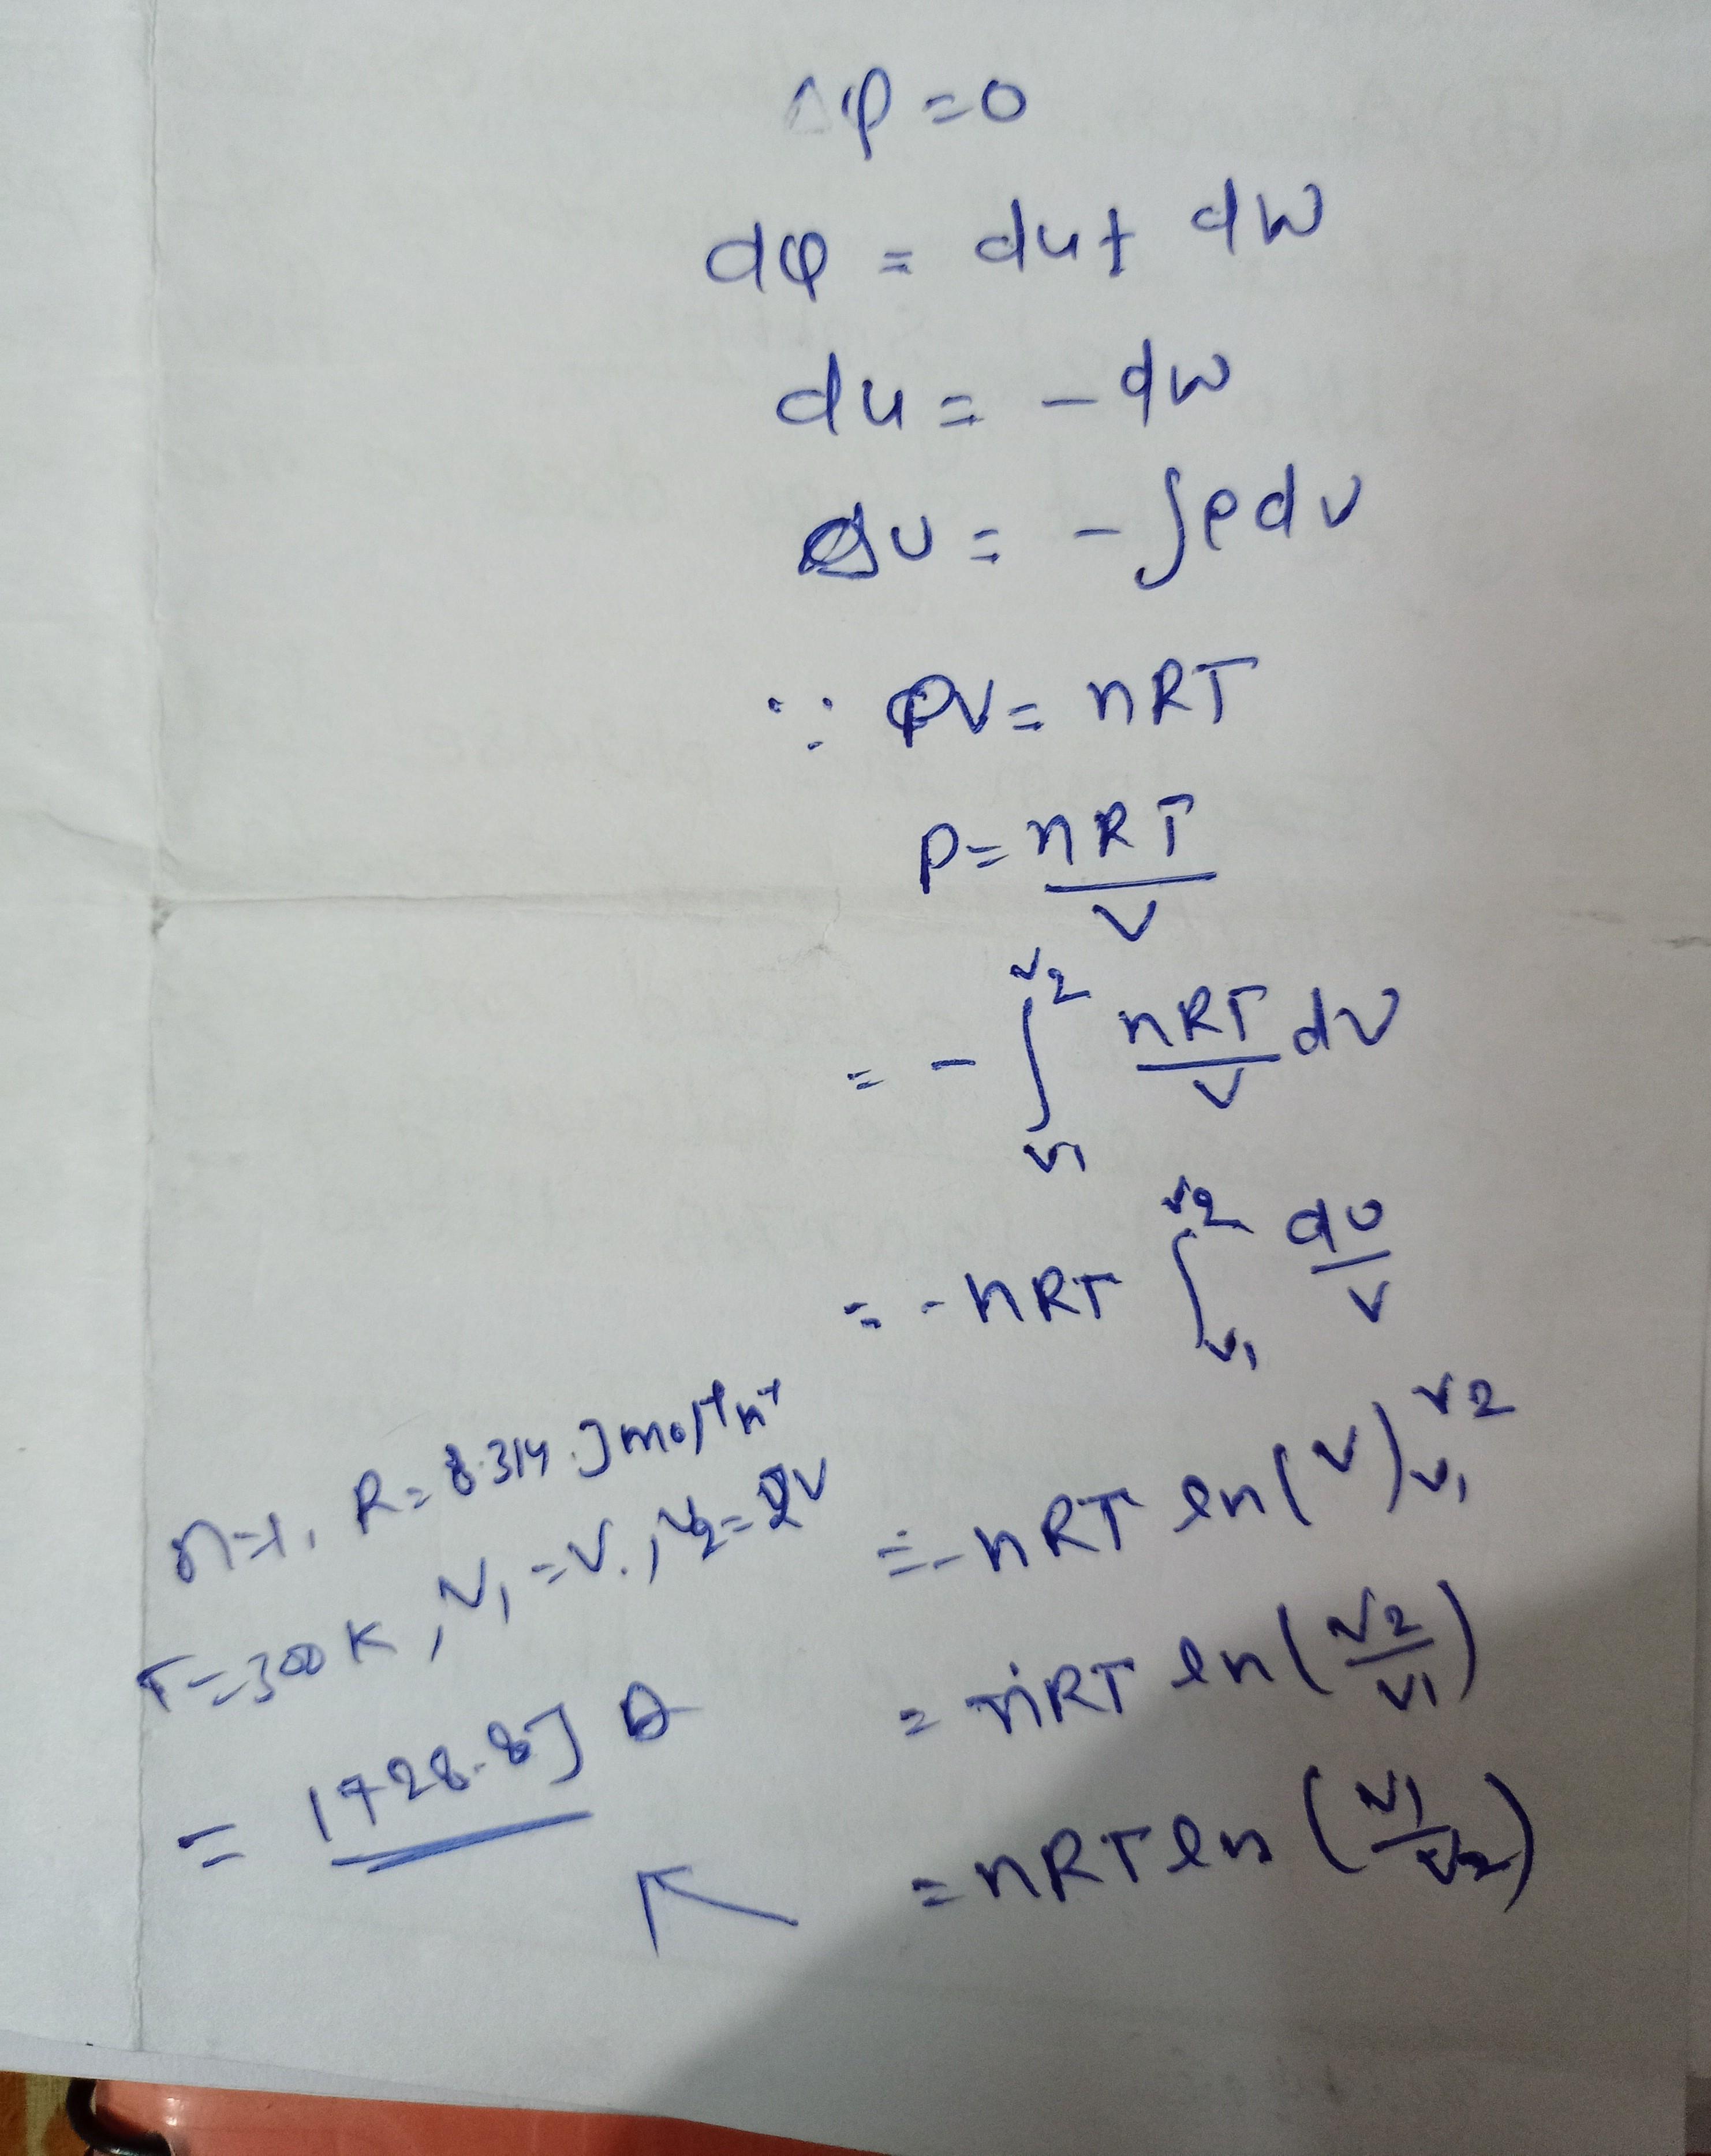 Δφ = 0
dφ = du + dw
du = - dw
Δu = - ∫pdv
∵ PV = nRT
P = nRT/V
= - ∫_{v1}^{v2} nRT/V dv
= - nRT ∫_{v1}^{v2} dv/v
= - nRT ln(v)_{v1}^{v2}
= - nRT ln(v2/v1)
= nRT ln(v1/v2)
n=1, R = 8.314 J mol⁻¹ K⁻¹
T = 300 K, V1 = V, V2 = 2V
= 1728.8 J